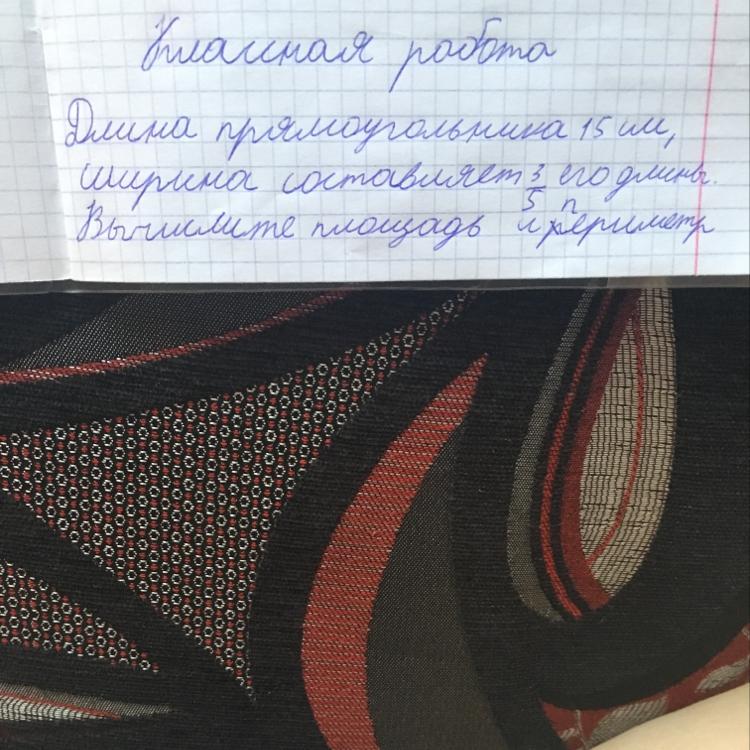 Классная работа
Длина прямоугольника 15 см,
ширина составляет 3/5 его длины.
Вычислите площадь и периметр